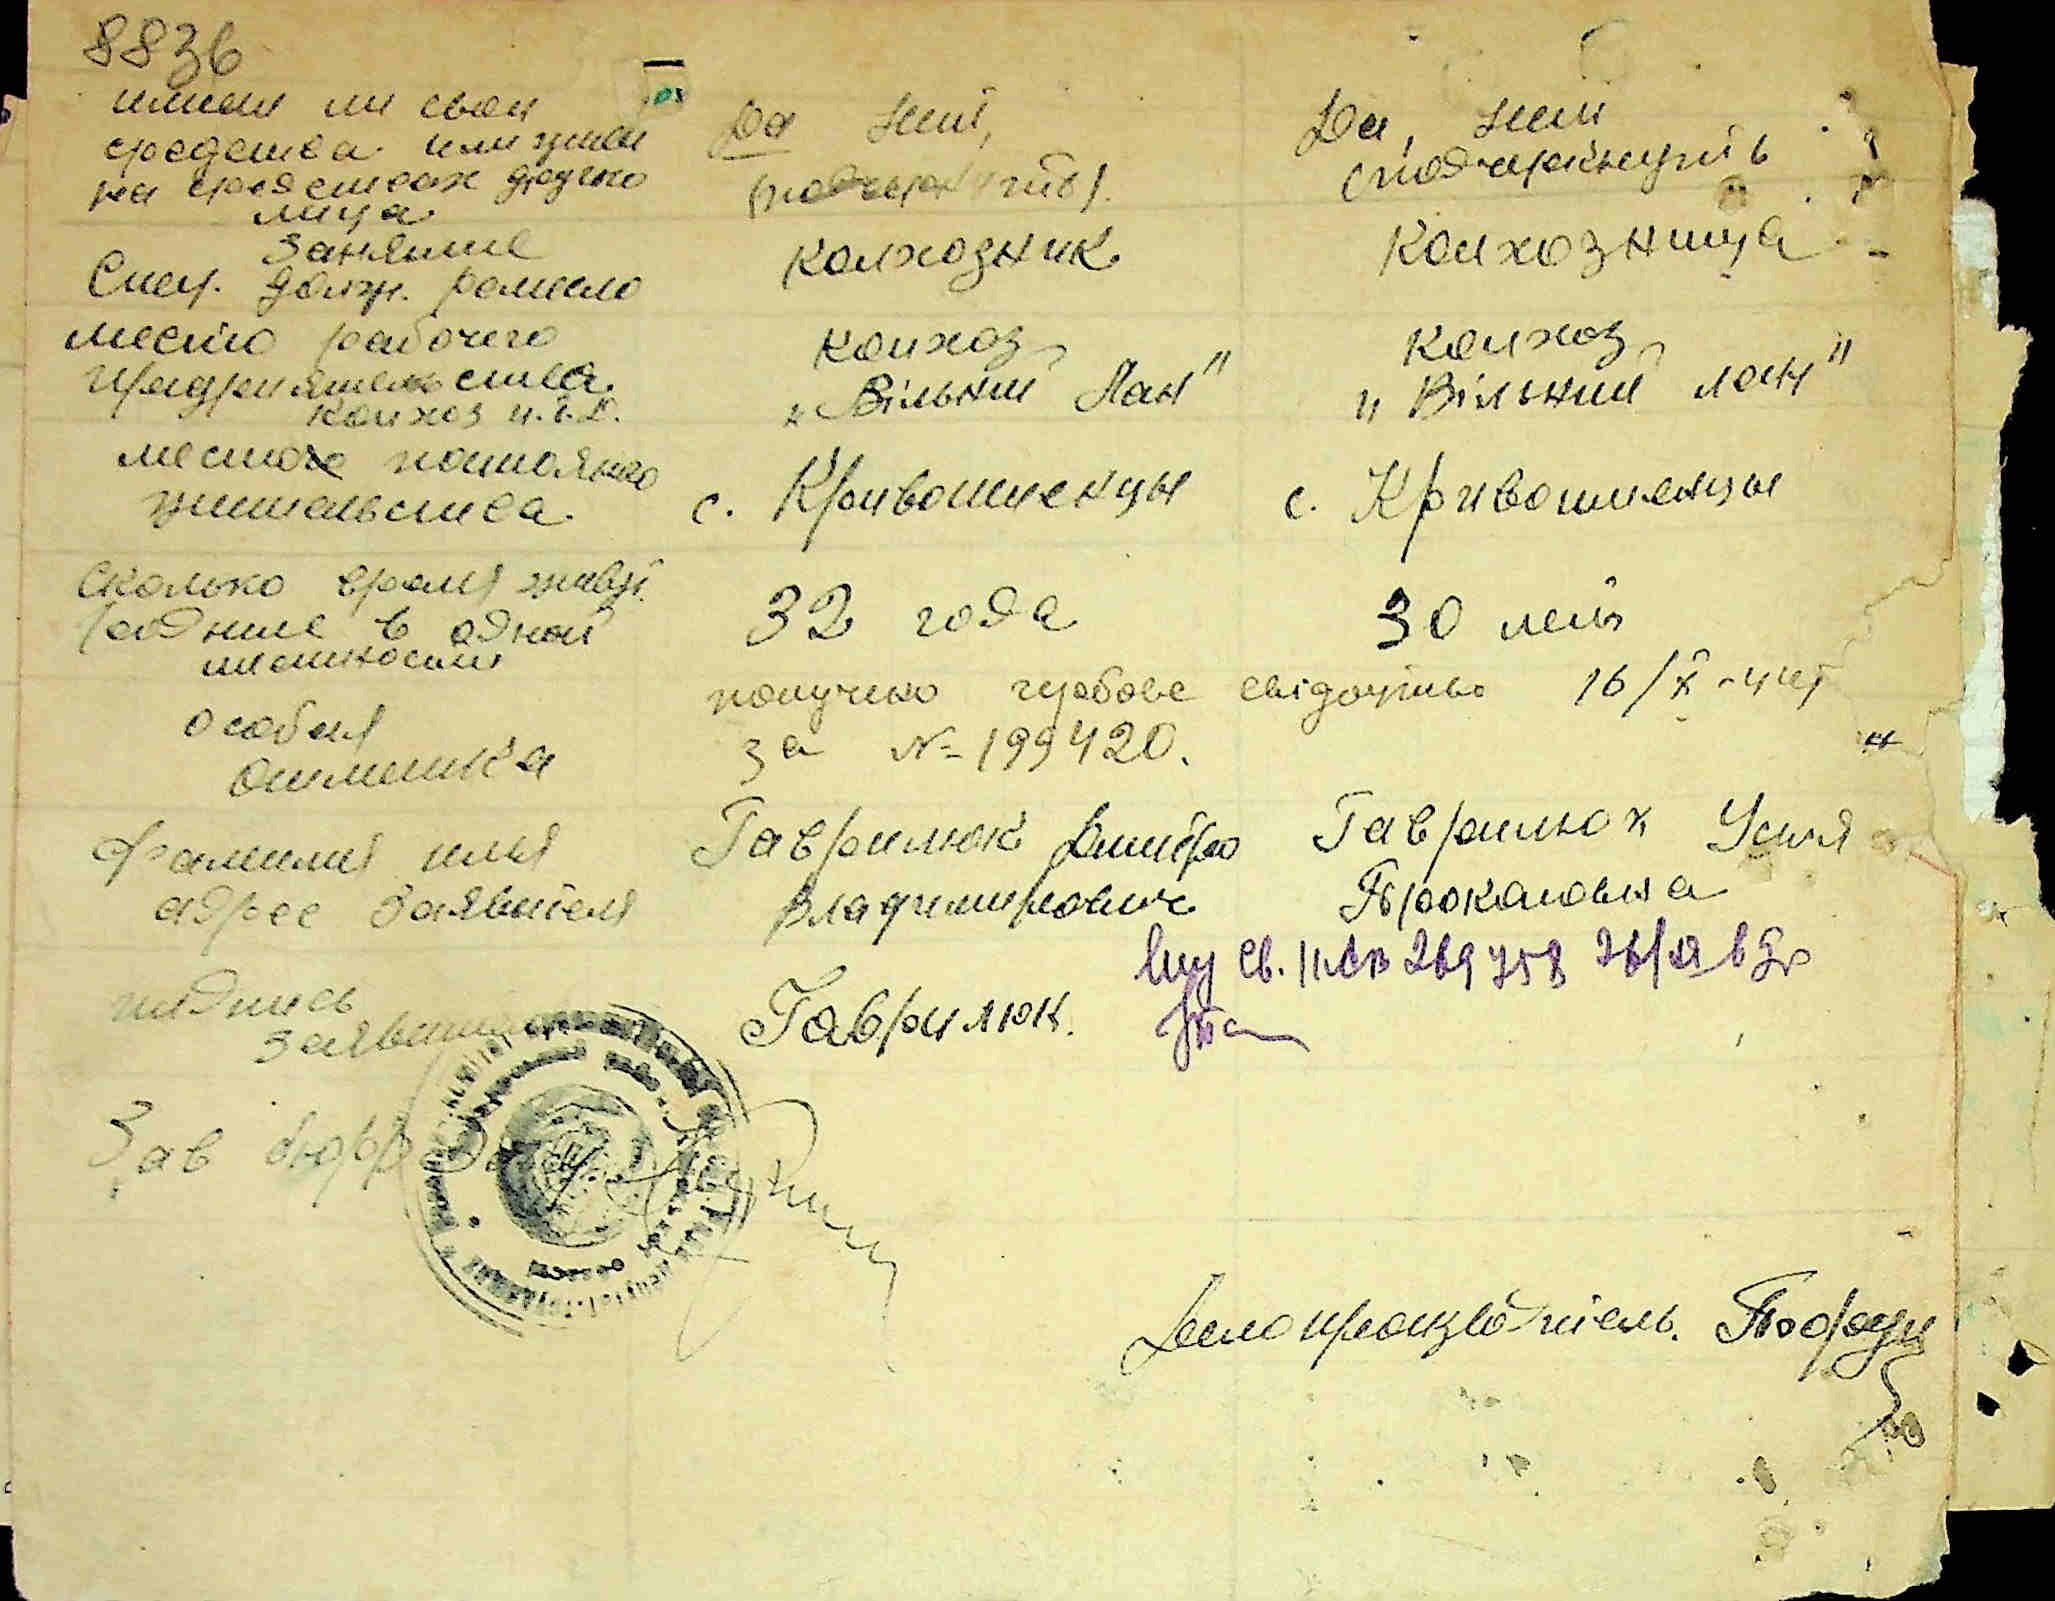 8836
имел ли свои
средства или жил
на средствах другого
лица
Да нет,
(подчеркнуть).
Да, нет
(подчеркнуть
Занятие
Спец. должн. ремесло
колхозник
колхозница
место рабочего
колхоз и.т.д.
колхоз
„Вільний Лан"
колхоз
„Вільний лан"
место постоянго
жительства
с. Кривошиенцы
с. Кривошиенцы
Сколько время живут
в одной
местности
32 года
30 лет
особая
отметка
получено гербове свідоцтво 16/X
за № 199420.
Фамилия имя
адрес заявителя
Гаврилюк Дмитро
Владимирович
Гаврилюк Устя
Прокоповна
подпись
Гаврилюк.
269758
Зав бюро
Делопроизводитель.